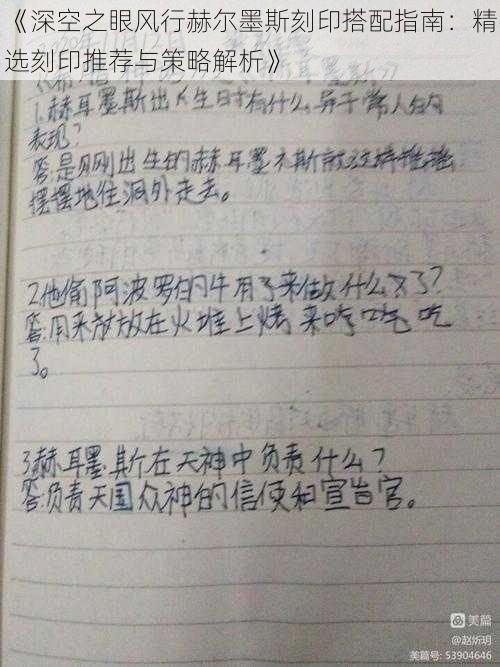 《深空之眼风行赫尔墨斯刻印搭配指南：精
选刻印推荐与策略解析》
1.赫耳墨斯出生时有什么异于常人的
表现？
答:是刚出生的赫耳墨斯就摇摇
摆摆地往洞外走去。
2.他偷阿波罗的牛用了来做什么了？
答:用来放放在火堆上烤来吃吃吃
了。
3.赫耳墨斯在天神中负责什么？
答:负责天国众神的信使和宣告官。
美篇
@赵炘玥
美篇号: 53904646